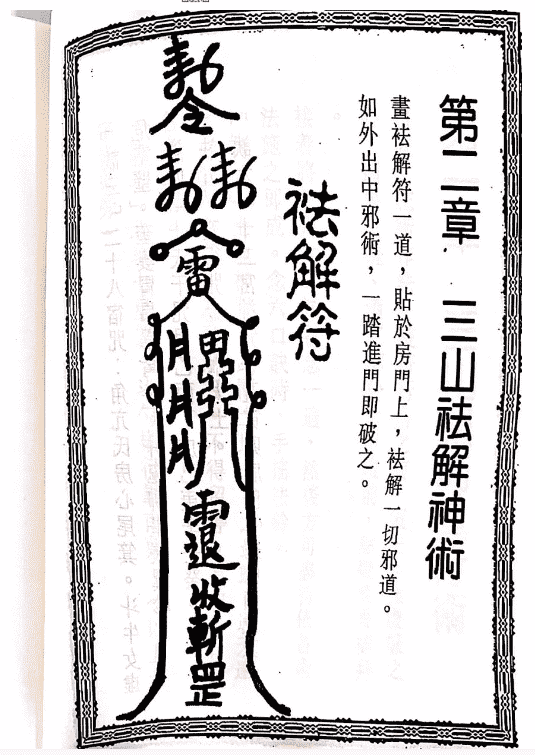 第二章 三山祛解神術
畫祛解符一道，貼於房門上，祛解一切邪道。
如外出中邪術，一踏進門即破之。
祛解符
令
雷
月月月
退收斬罡